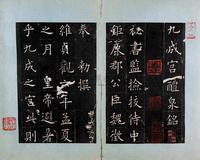 九成宮醴泉銘
秘書監檢挍侍中
鉅鹿郡公臣魏徵
奉勅撰
維貞觀六年孟夏
之月皇帝避暑
乎九成之宮此則